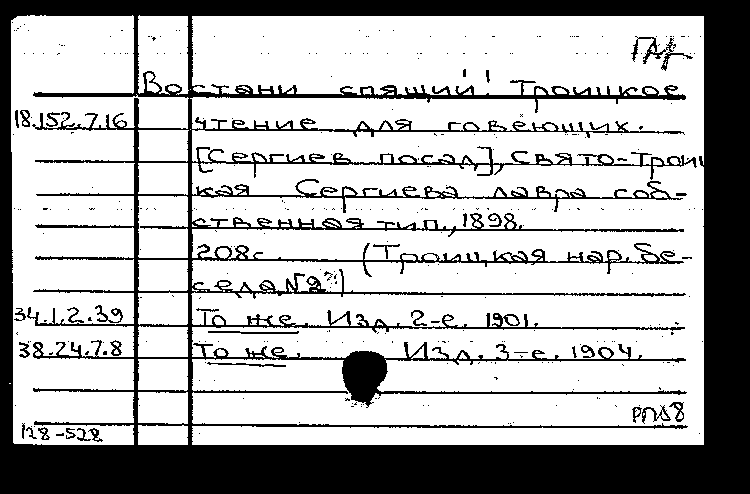 Востани спящий! Троицкое
18.152.7.16 чтение для говеющих.
[Сергиев посад], Свято-Троиц
кая Сергиева лавра соб-
ственная тип., 1898.
208с. (Троицкая нар. бе-
седа №2)
34.1.2.39 То же. Изд. 2-е. 1901.
38.24.7.8 То же. Изд. 3-е. 1904.
128-528